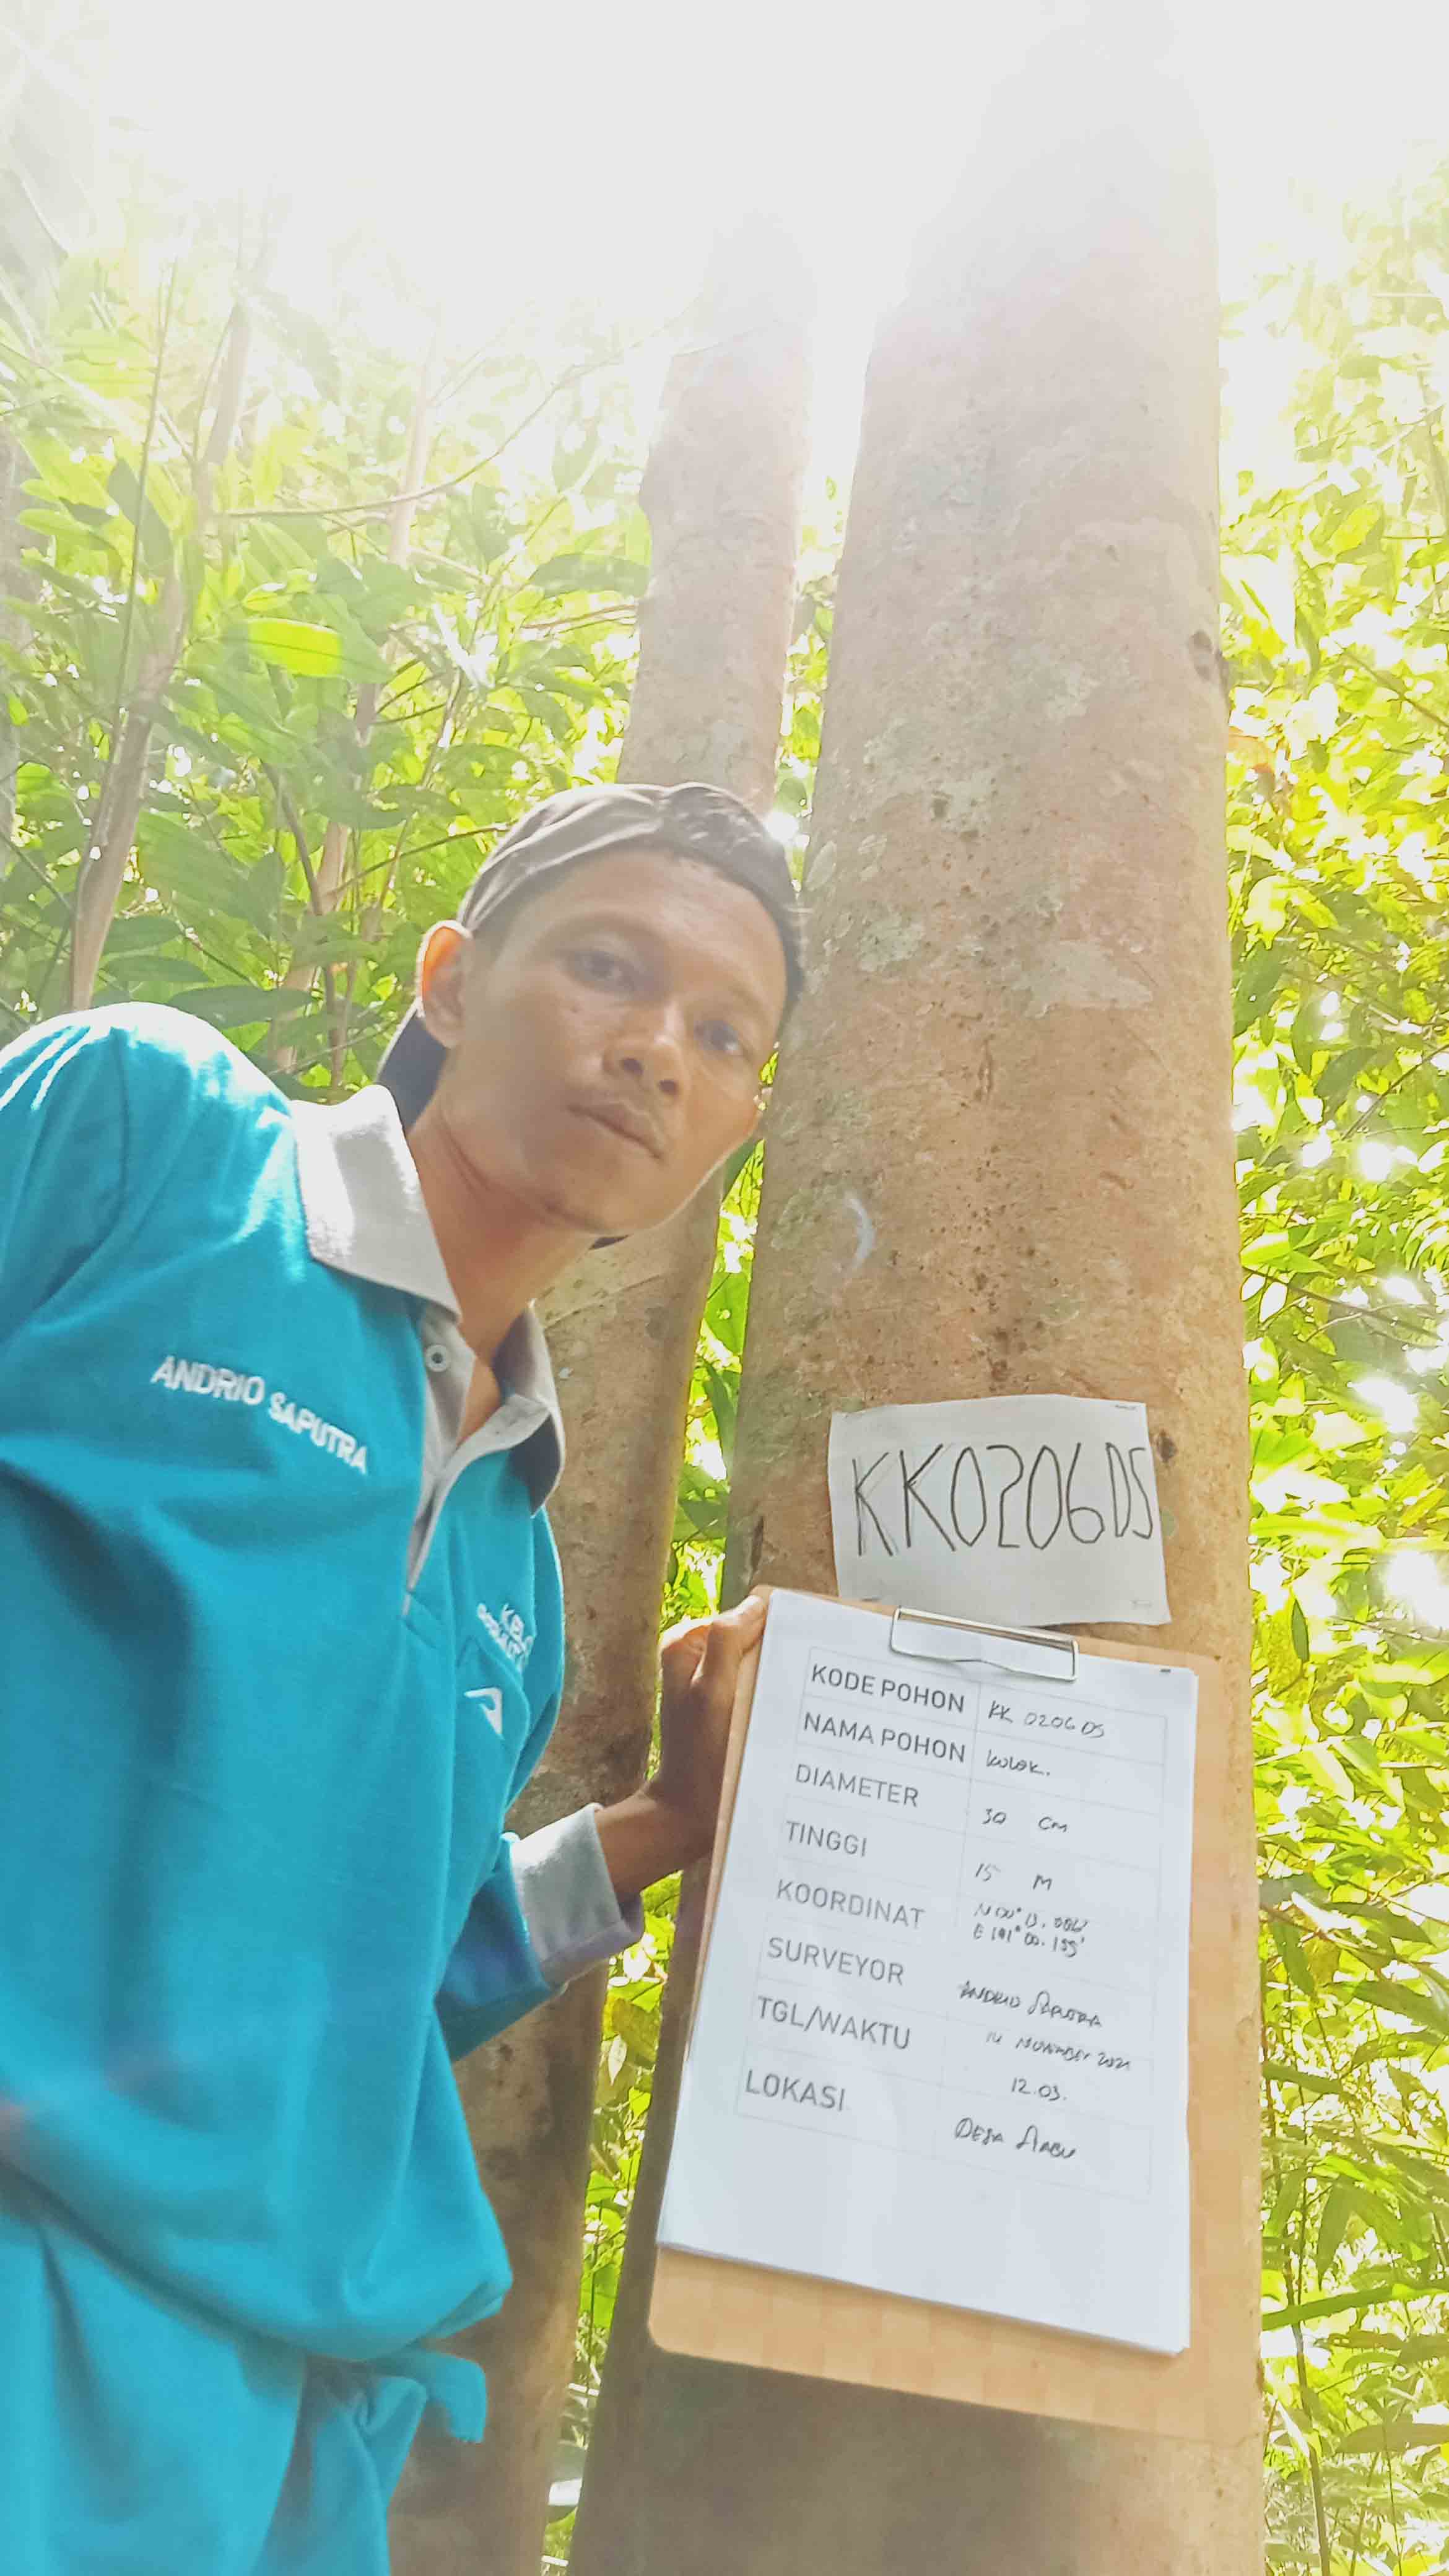 ANDRIO SAPUTRA
KK0206DS
KODE POHON KK 0206 DS
NAMA POHON KOLOK.
DIAMETER 30 CM
TINGGI 15 M
KOORDINAT
SURVEYOR ANDRIO SAPUTRA
TGL/WAKTU 14 NOVEMBER 2021
12.03.
LOKASI DESA SIABU